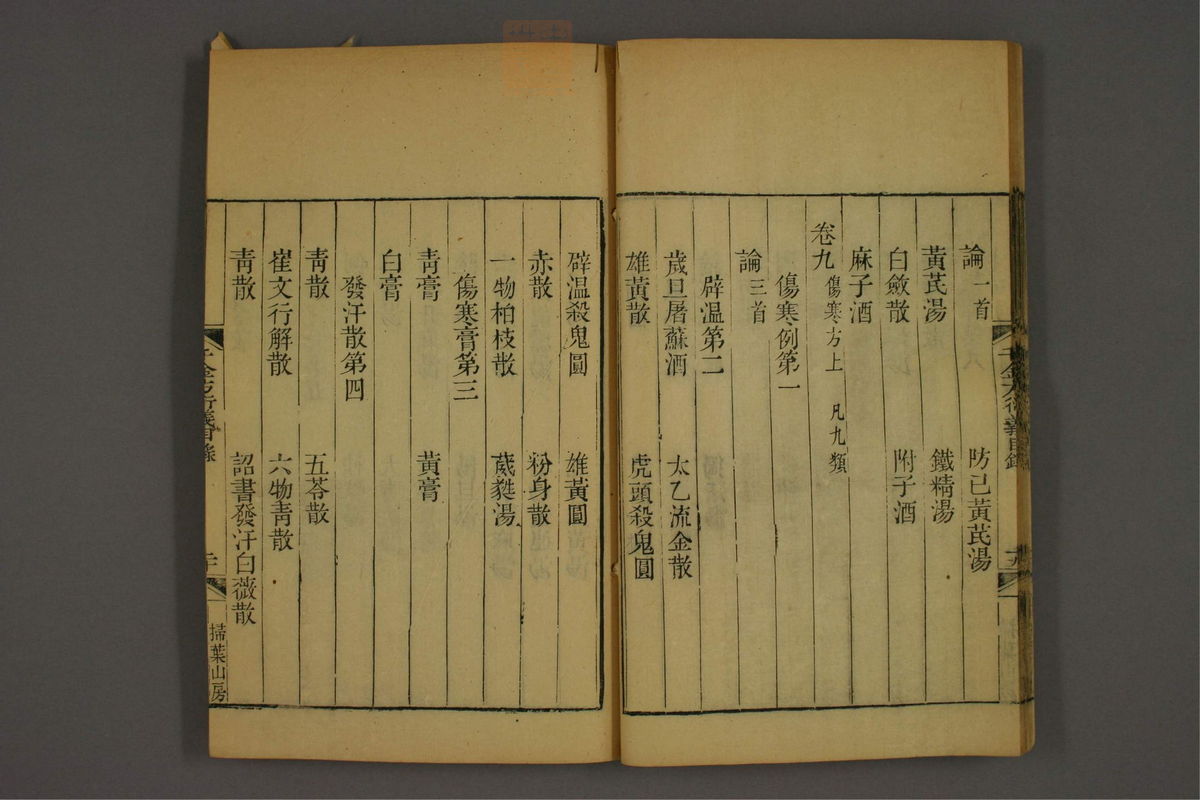 論一首　防已黃芪湯
黃芪湯　鐵精湯
白斂散　附子酒
麻子酒
卷九 傷寒方上 凡九類
傷寒例第一
論三首
辟溫第二
歲旦屠蘇酒　太乙流金散
雄黃散　虎頭殺鬼圓
辟溫殺鬼圓　雄黃圓
赤散　粉身散
一物柏枝散　葳蕤湯
傷寒膏第三
青膏　黃膏
白膏
發汗散第四
青散　五苓散
崔文行解散　六物青散
青散　詔書發汗白薇散
千金方衍義目錄　二十　掃葉山房